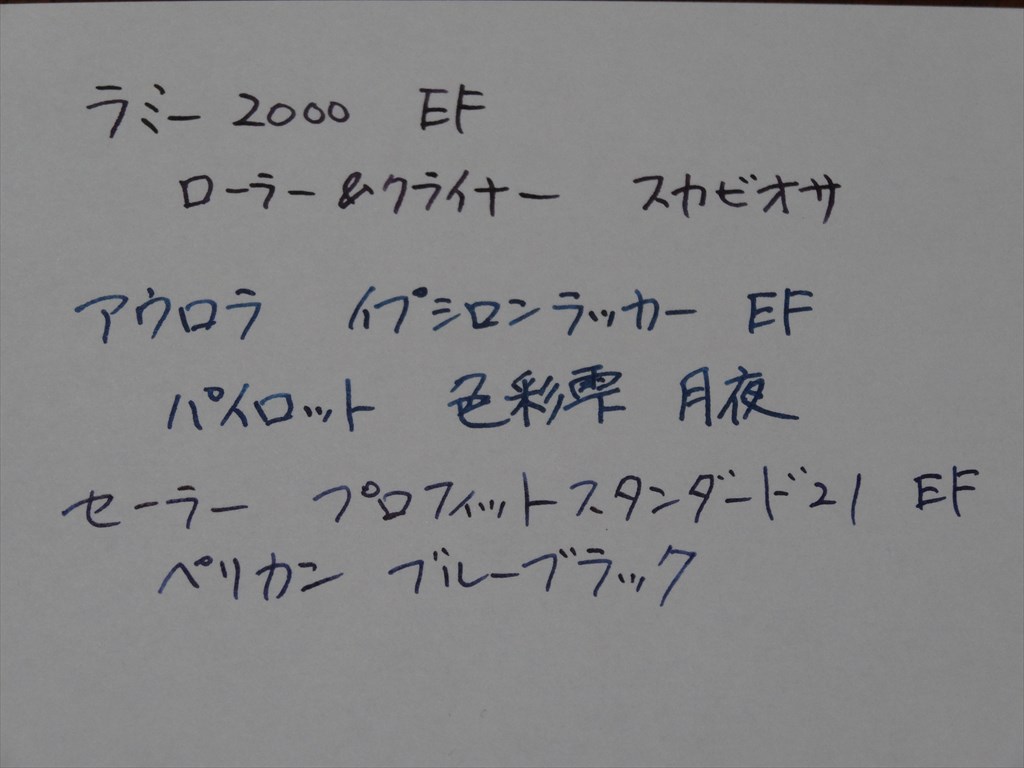 ラミー 2000 EF
ローラー&クライナー スカビオサ
アウロラ イプシロンラッカー EF
パイロット 色彩雫 月夜
セーラー プロフィットスタンダード21 EF
ペリカン ブルーブラック